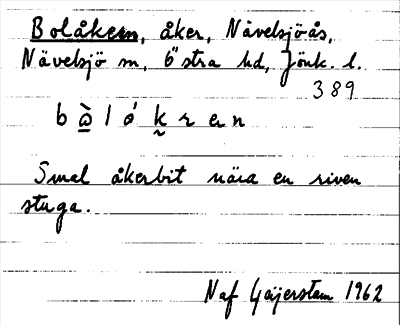 Bolåkern, åker, Nävelsjöås,
Nävelsjö sn, Östra hd, Jönk. l.
389
b ò̱ l ó k̰ r e n
Smal åkerbit nära en riven
stuga.
Naf Gäijerstam 1962